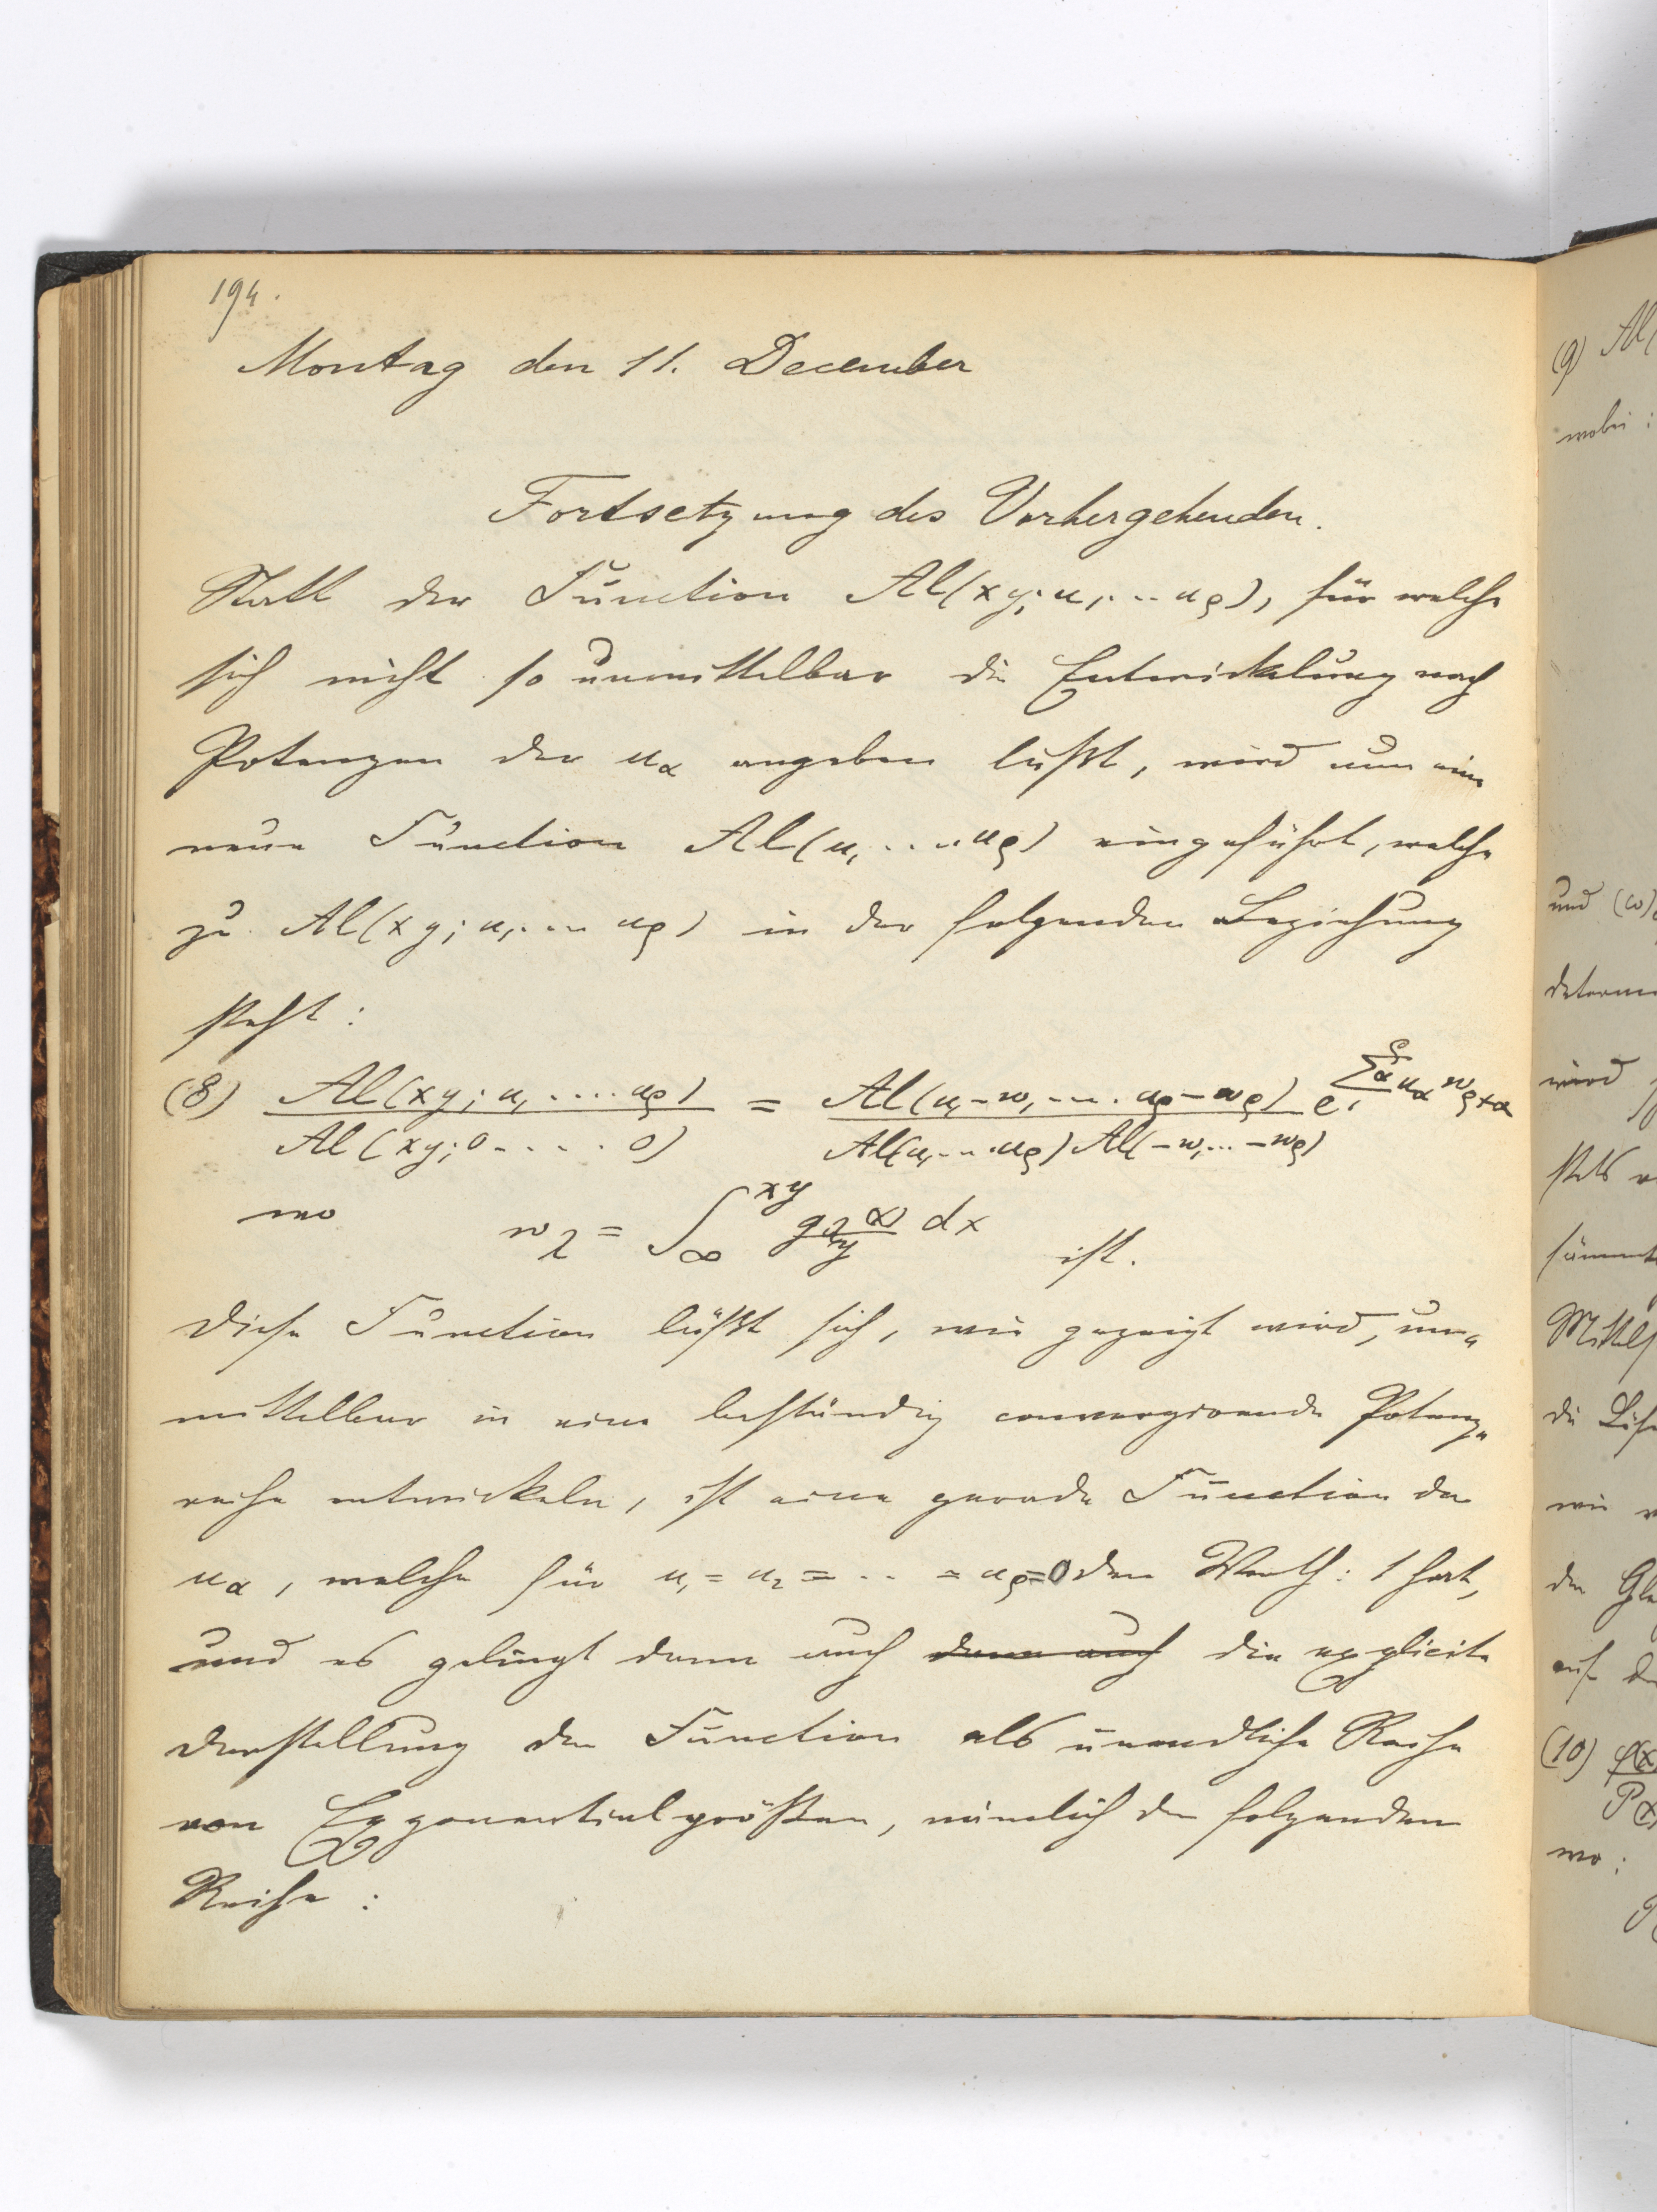 194.
Montag den 11. December
Fortsetzung des Vorhergehenden.
Statt der Function Al(xy; u₁...uρ), für welche
sich nicht so unmittelbar die Entwickelung nach
Potenzen der uα angeben läßt, wird nun eine
neue Function Al(u₁....uρ) eingeführt, welche
zu Al(xy; u₁....uρ) in der folgenden Beziehung
steht:
(8) Al(xy; u₁....uρ) / Al(xy; 0.....0) = Al(u₁-w₁....uρ-wρ) / Al(u₁...uρ) Al(-w₁...-wρ) e^{∑α₁^ρ uα wρ+α}
wo wλ = ∫_∞^{xy} g(x)λ/y dx ist.
Diese Function läßt sich, wie gezeigt wird, un-
mittelbar in eine beständig convergirende Potenz-
reihe entwickeln, ist eine gerade Function der
uα, welche für u₁ = u₂ = .. = uρ = 0 den Werth: 1 hat,
und es gelingt dann auch dann auch die explicite
Darstellung der Function als unendliche Reihe
von Exponentialgrößen, nämlich der folgenden
Reihe:
(9) Al(
wobei:
und (ω)
wird
stets
die
wie
der
auf
(10)
wo: